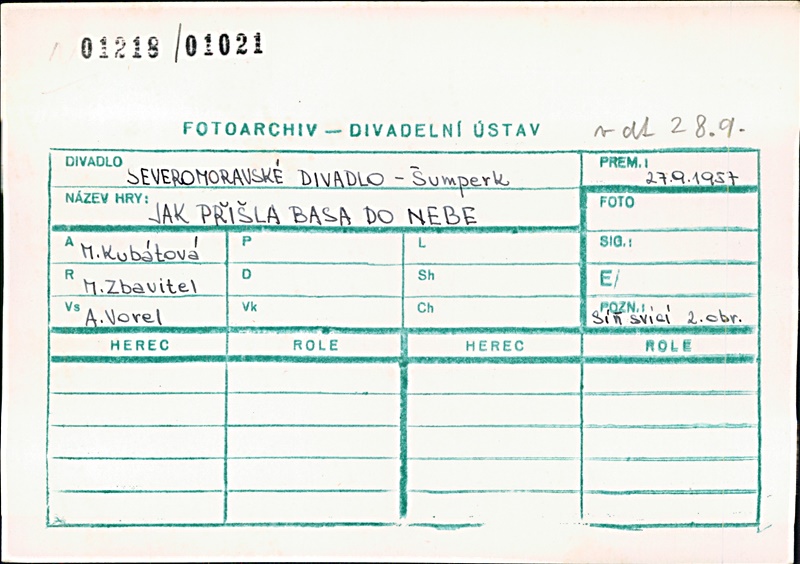 01218/01021
FOTOARCHIV — DIVADELNÍ ÚSTAV
v dt 28.9.
DIVADLO SEVEROMORAVSKÉ DIVADLO - Šumperk
PREM.: 27.9.1957
NÁZEV HRY: JAK PŘIŠLA BASA DO NEBE
FOTO
A M. Kubátová P L SIG.:
R M. Zbavitel D Sh E/
Vs A. Vorel Vk Ch POZN.: Síň svící 2. obr.
HEREC ROLE HEREC ROLE